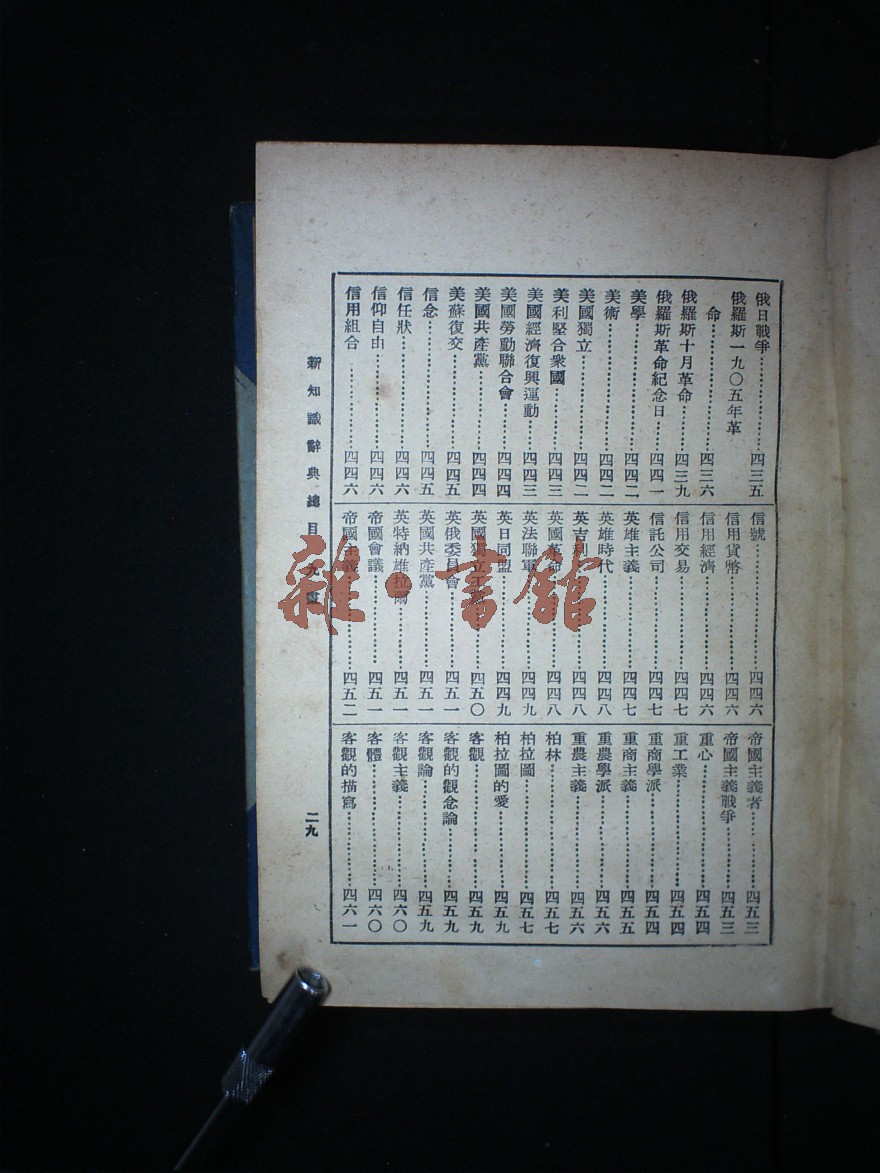 俄日戰爭⋯⋯四三五
俄羅斯一九〇五年革
命⋯⋯四三六
俄羅斯十月革命⋯⋯四三九
俄羅斯革命紀念日⋯⋯四四一
美學⋯⋯四四二
美術⋯⋯四四二
美國獨立⋯⋯四四二
美利堅合衆國⋯⋯四四三
美國經濟復興運動⋯⋯四四三
美國勞動聯合會⋯⋯四四四
美國共產黨⋯⋯四四四
美蘇復交⋯⋯四四五
信念⋯⋯四四五
信任狀⋯⋯四四六
信仰自由⋯⋯四四六
信用組合⋯⋯四四六
信號⋯⋯四四六
信用貨幣⋯⋯四四六
信用經濟⋯⋯四四六
信用交易⋯⋯四四七
信託公司⋯⋯四四七
英雄主義⋯⋯四四七
英雄時代⋯⋯四四八
英吉利⋯⋯四四八
英國革命⋯⋯四四八
英法聯軍⋯⋯四四九
英日同盟⋯⋯四四九
英國獨立工黨⋯⋯四五〇
英俄委員會⋯⋯四五一
英國共產黨⋯⋯四五一
英特納雄拉爾⋯⋯四五一
帝國會議⋯⋯四五一
帝國主義⋯⋯四五二
帝國主義者⋯⋯四五三
帝國主義戰爭⋯⋯四五三
重心⋯⋯四五四
重工業⋯⋯四五四
重商學派⋯⋯四五四
重商主義⋯⋯四五五
重農學派⋯⋯四五六
重農主義⋯⋯四五六
柏林⋯⋯四五七
柏拉圖⋯⋯四五七
柏拉圖的愛⋯⋯四五九
客觀⋯⋯四五九
客觀的觀念論⋯⋯四五九
客觀論⋯⋯四五九
客觀主義⋯⋯四六〇
客體⋯⋯四六〇
客觀的描寫⋯⋯四六一
新知識辭典總目 九畫
二九
雜·書館